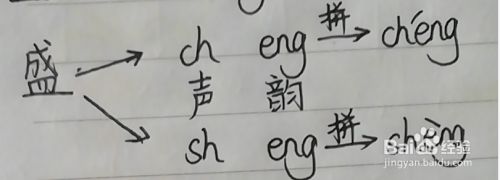 盛 ch eng 拼 chéng
声 韵
sh eng 拼 shèn
Baidu经验
jingyan.baidu.com